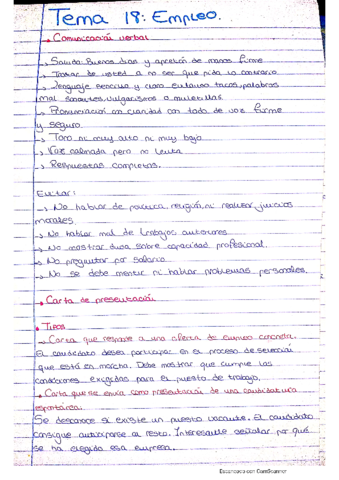 Tema 18: Empleo.
→ Comunicación verbal
→ Saludo: Buenos días y apretón de manos firme
→ Tratar de usted a no ser que pida lo contrario
→ Lenguaje sencillo y claro evitando tacos, palabras
mal sonantes, vulgarismos o muletillas.
→ Pronunciación con claridad con todo de voz firme
y seguro
→ Tono ni muy alto ni muy bajo
→ Voz calmada pero no lenta
→ Respuestas completas.
Evitar:
→ No hablar de política, religión, ni realizar juicios
morales
→ No hablar mal de trabajos anteriores
→ No mostrar duda sobre capacidad profesional.
→ No preguntar por salario
→ No se debe mentir ni hablar problemas personales.
→ Carta de presentación
• Tipos
→ Carta que responde a una oferta de empleo concreta.
El candidato desea participar en el proceso de selección
que está en marcha. Debe mostrar que cumple las
condiciones exigidas para el puesto de trabajo.
→ Carta que se envía como presentación de una candidatura
espontánea.
Se desconoce si existe un puesto vacante. El candidato
consigue anticiparse al resto. Interesante señalar por qué
se ha elegido esa empresa.
Escaneado con CamScanner